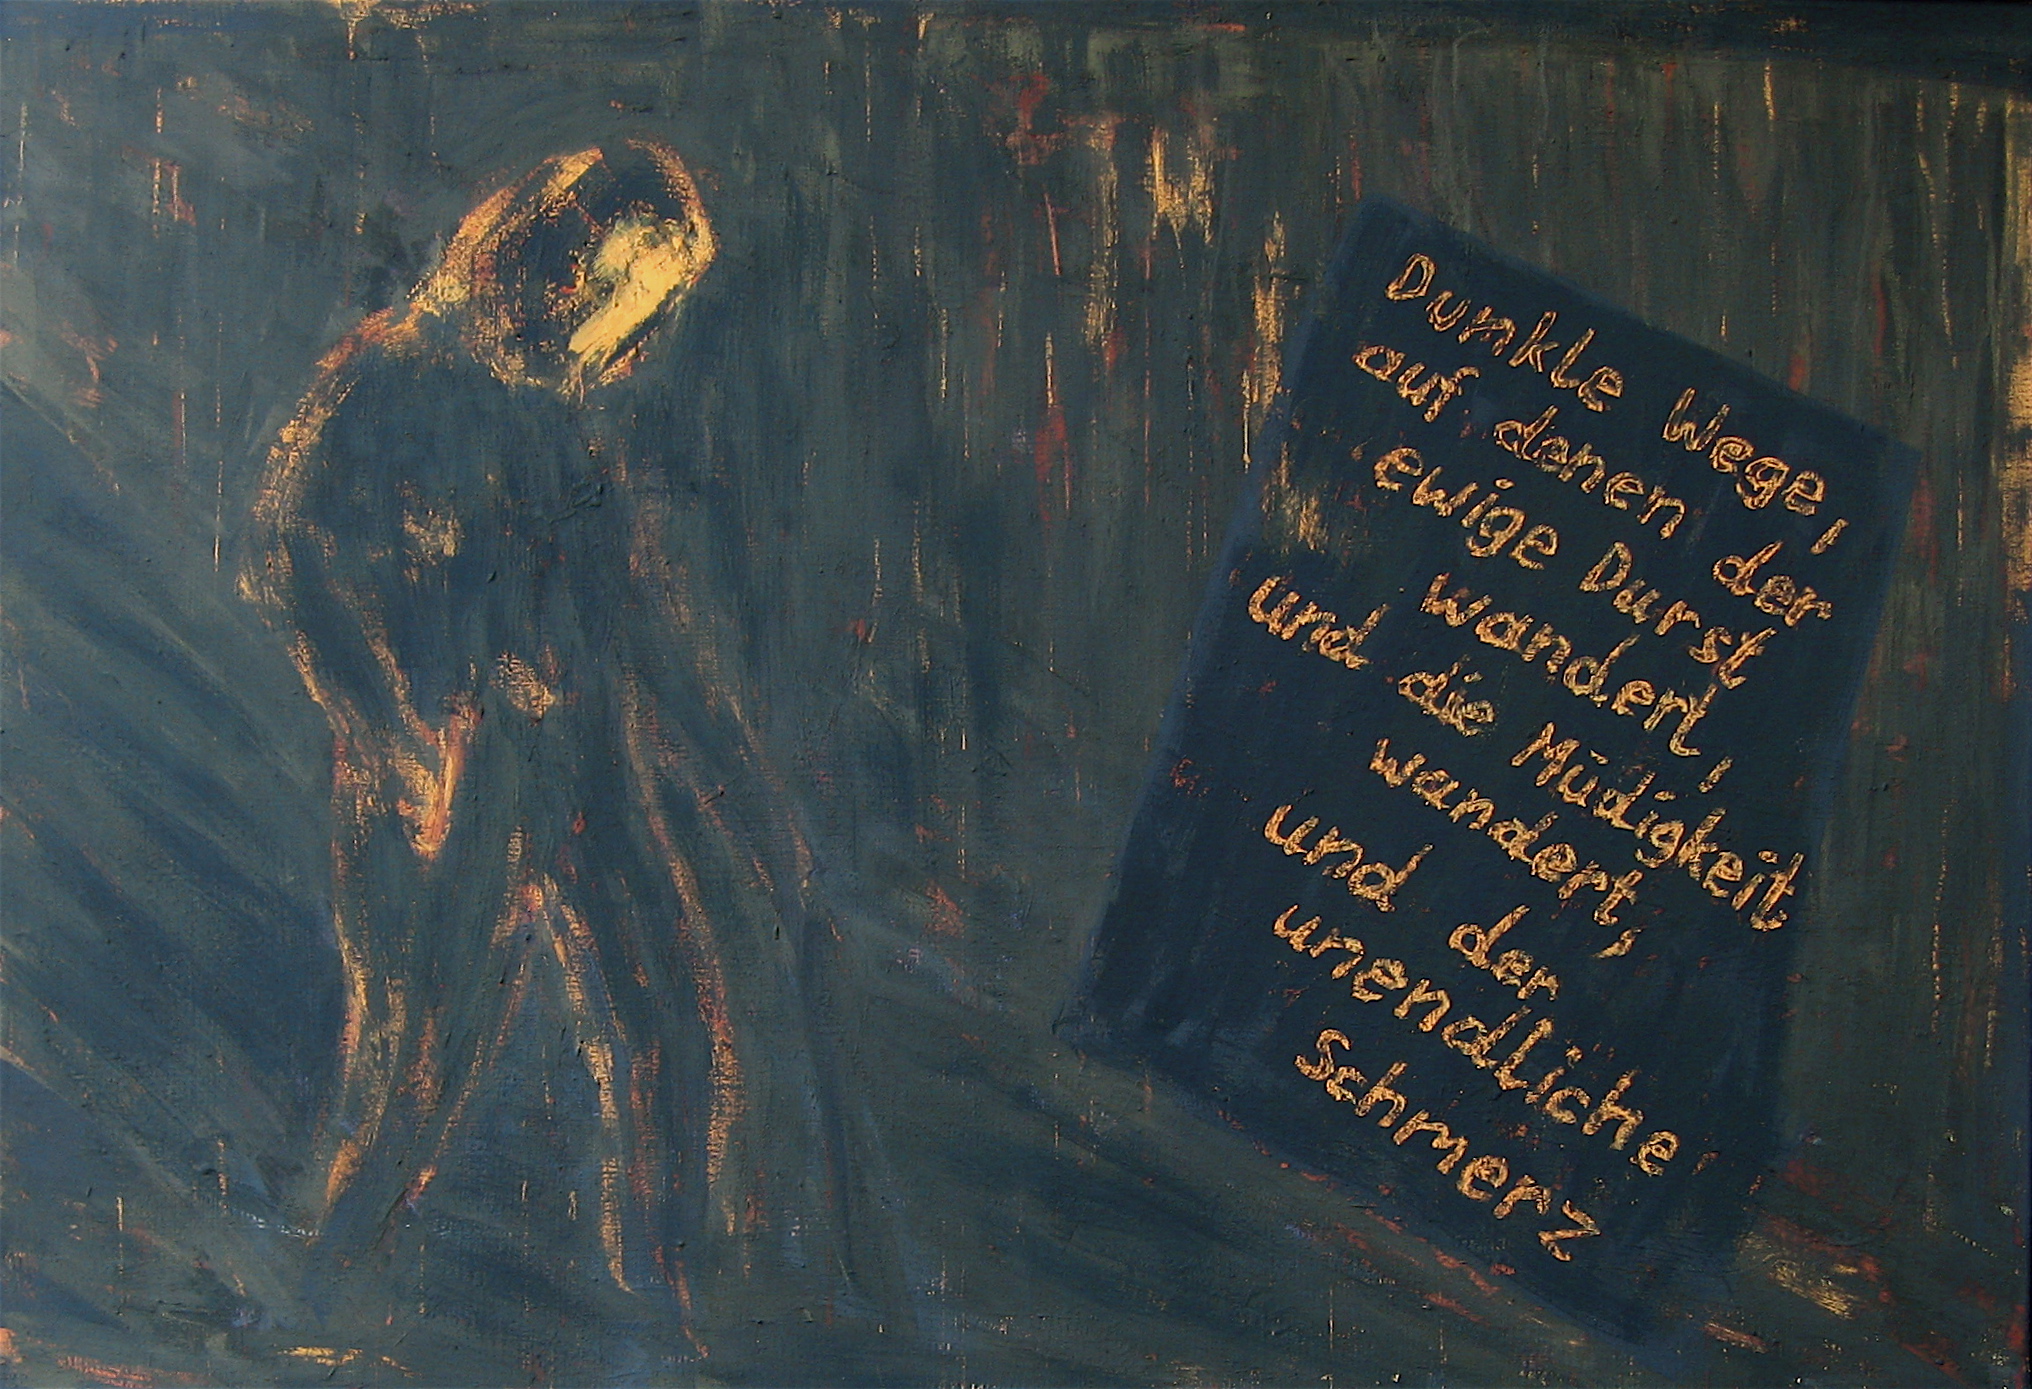 Dunkle Wege,
auf denen der
ewige Durst
wandert,
und die Müdigkeit
wandert,
und der
unendliche
Schmerz